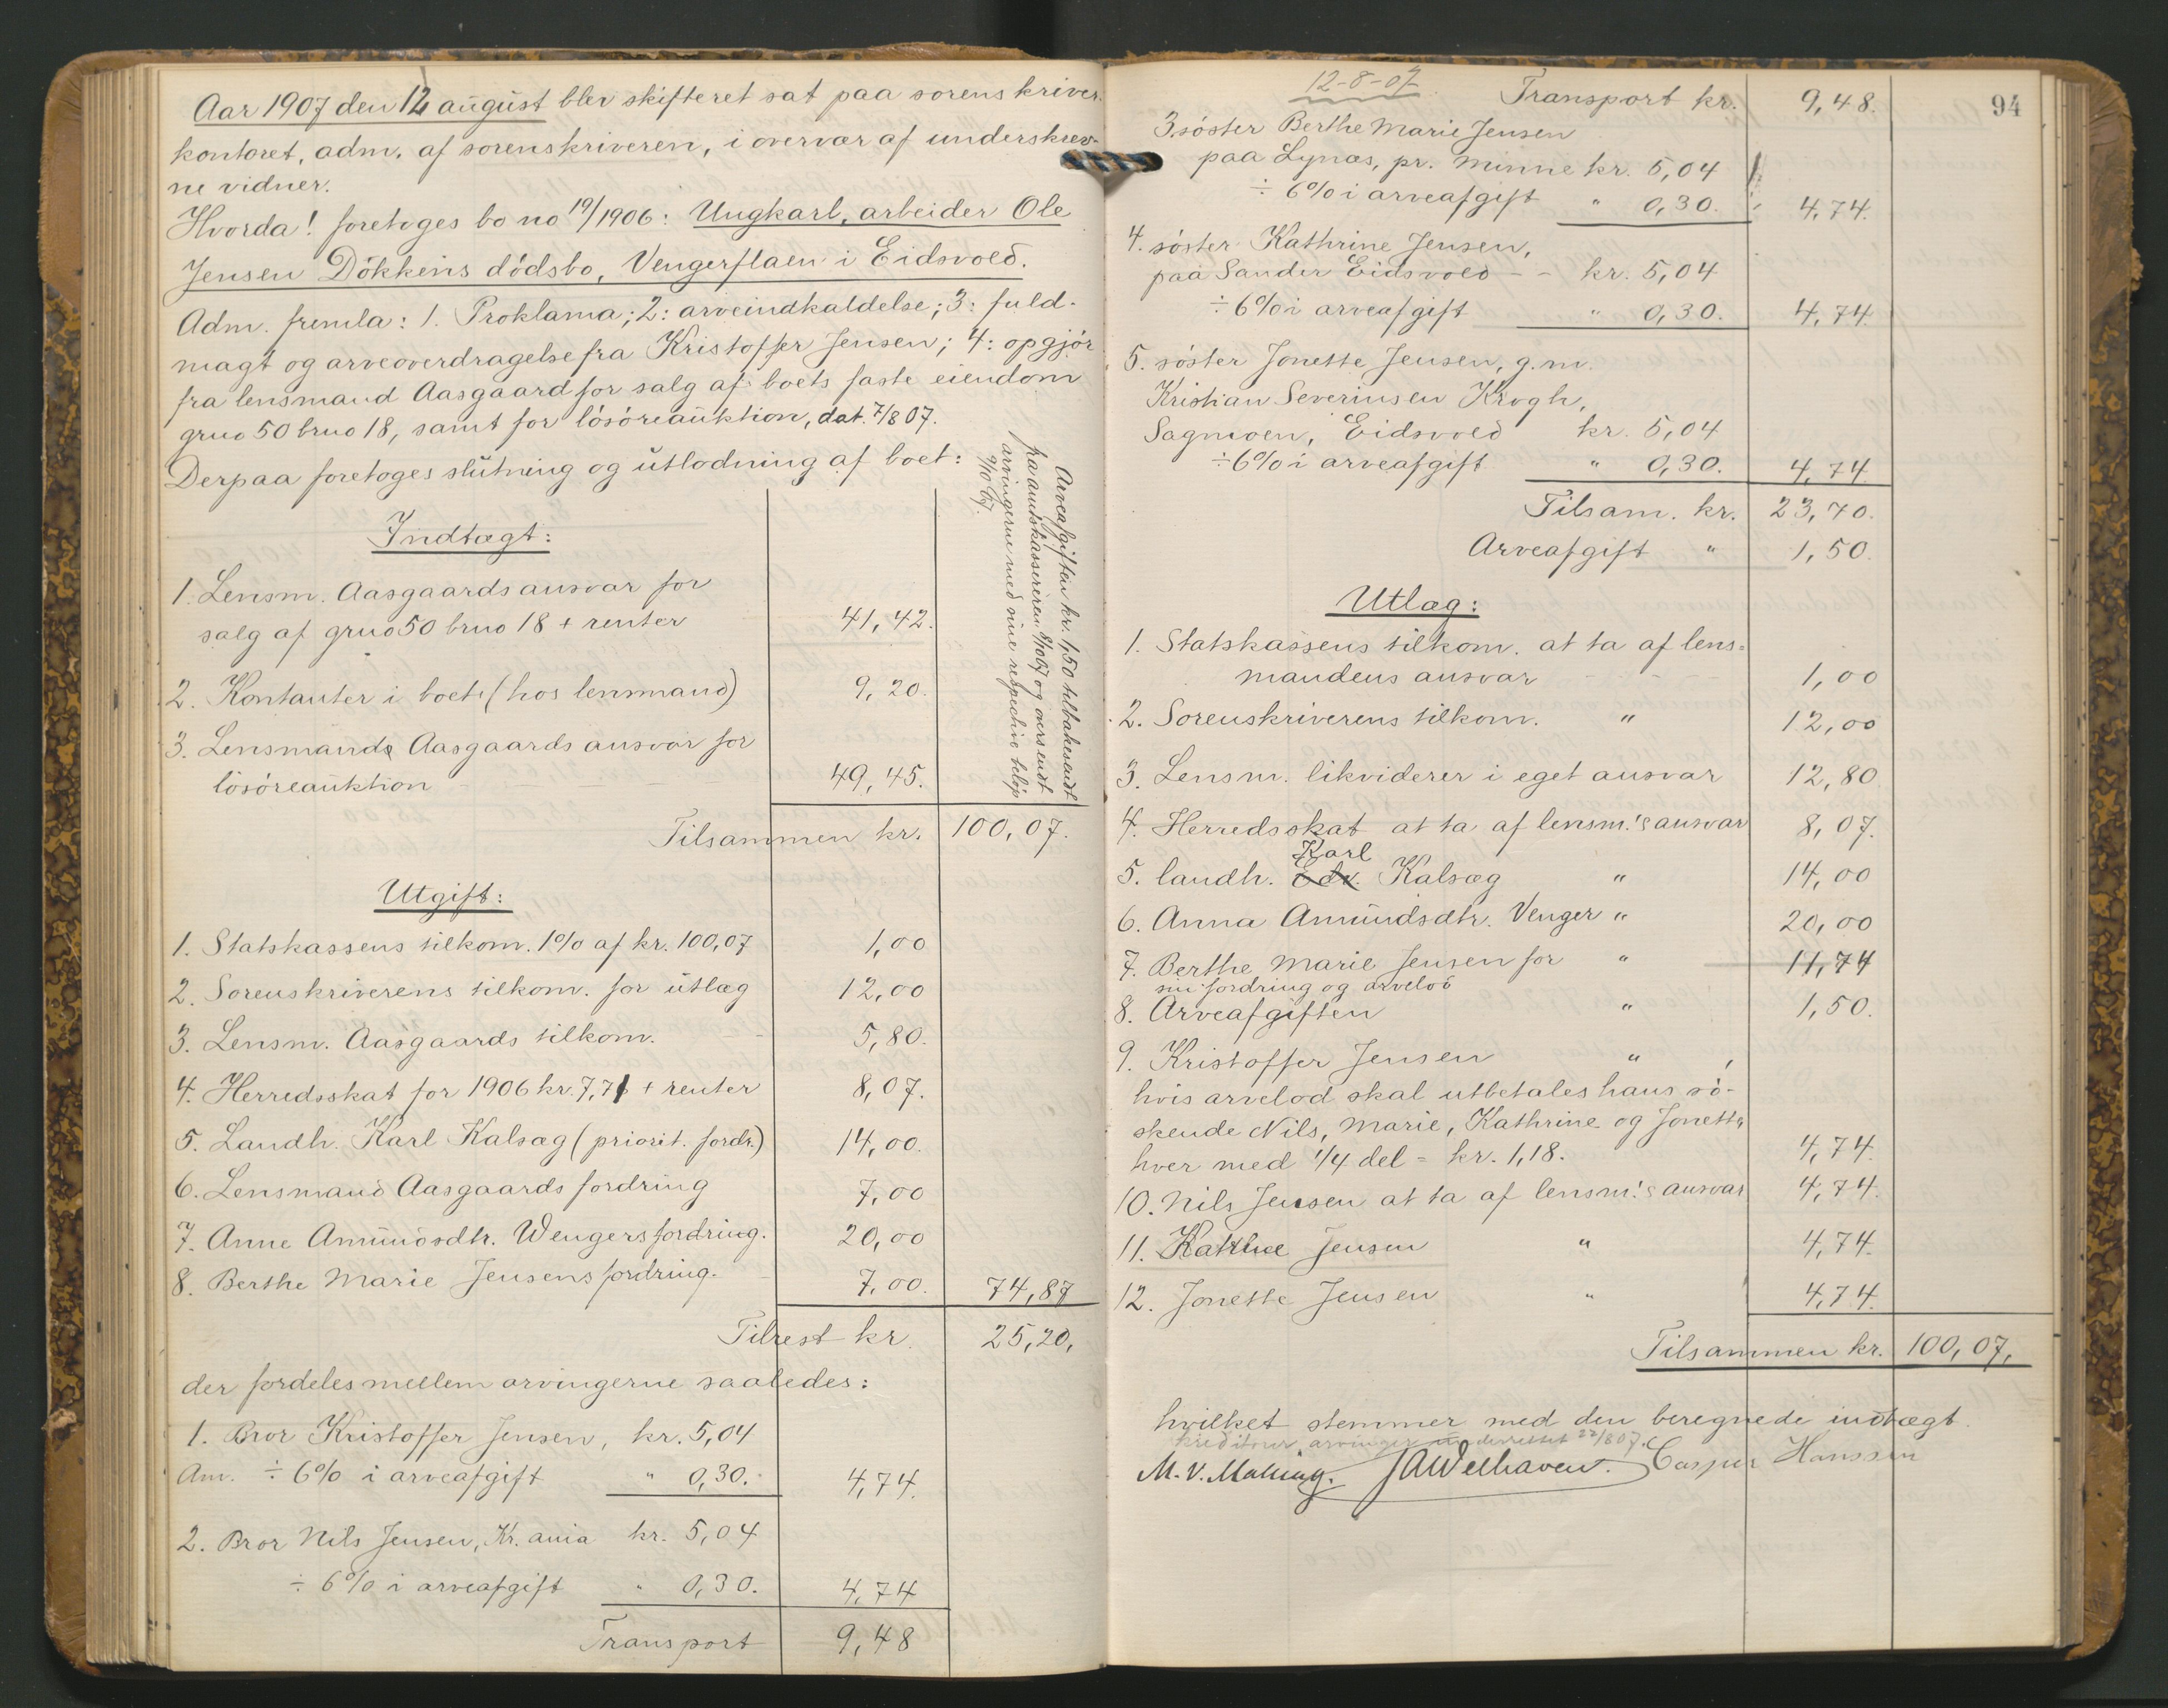 Aar 1907 den 12 august blev skifteret sat paa sorenskriver-
kontoret, adm. af sorenskriveren, i overvær af underskrev-
ne vidner.
Hvorda! foretoges bo no 19/1906: Ungkarl, arbeider Ole
Jensen Dökkens dödsbo, Vengerflaen i Eidsvold.
Adm. fremla: 1. Proklama; 2: arveindkaldelse; 3: fuld-
magt og arveoverdragelse fra Kristoffer Jensen; 4: opgjör
fra lensmand Aasgaard for salg af boets faste eiendom
grno 50 brno 18, samt for lösöreauktion, dat. 7/8 07.
Derpaa foretoges slutning og utlodning af boet:
Arveafgiften kr. 1,50 tilbakesendt
fra amtskassereren 8/10 07 og oversendt
arvingerne med sine respective beløp
9/10 07.
Indtægt:
1. Lensm. Aasgaards ansvar for
salg af grno 50 brno 18 + renter 41,42.
2. Kontanter i boet (hos lensmand) 9,20.
3. Lensmand Aasgaards ansvar for
lösöreauktion - - - 49,45.
Tilsammen kr. 100,07.
Utgift:
1. Statskassens tilkom. 1% af kr. 100,07 1,00
2. Sorenskriverens tilkom. for utlæg 12,00
3. Lensm. Aasgaards tilkom. - 5,80.
4. Herredsskat for 1906 kr. 7,71 + renter 8,07.
5. Landh. Karl Kalsæg (priorit. fordr.) 14,00.
6. Lensmand Aasgaards fordring 7,00
7. Anne Amundsdtr. Wengers fordring. 20,00
8. Berthe Marie Jensens fordring. 7,00. 74,87
Tilrest kr. 25,20.
der fordeles mellem arvingerne saaledes:
1. Bror Kristoffer Jensen, kr. 5,04
Am. ÷ 6% i arveafgift " 0,30. 4,74.
2. Bror Nils Jensen, Kr.ania kr. 5,04
÷ 6% i arveafgift " 0,30. 4,74
Transport 9,48
94
12-8-07. Transport kr. 9,48.
3. söster Berthe Marie Jensen
paa Lynæs, pr. Minne kr. 5,04
÷ 6% i arveafgift " 0,30. 4,74.
4. söster Kathrine Jensen,
paa Sander Eidsvold - - kr. 5,04
÷ 6% i arveafgift " 0,30. 4,74.
5. söster Jonette Jensen, g.m.
Kristian Severinsen Krogh,
Sagmoen, Eidsvold kr. 5,04
÷ 6% i arveafgift " 0,30. 4,74.
Tilsam. kr. 23,70.
Arveafgift " 1,50.
Utlæg:
1. Statskassens tilkom. at ta af lens-
mandens ansvar - - 1,00
2. Sorenskriverens tilkom. " 12,00
3. Lensm. likviderer i eget ansvar 12,80
4. Herredsskat at ta af lensm.'s ansvar 8,07.
Karl
5. landh. Edv. Kalsæg " 14,00
6. Anna Amundsdtr. Venger " 20,00
7. Berthe Marie Jensen for " 11,74
sin fordring og arvelod
8. Arveafgiften " 1,50.
9. Kristoffer Jensen " ,
hvis arvelod skal utbetales hans sö-
skende Nils, Marie, Kathrine og Jonette
hver med 1/4 del = kr. 1,18. 4,74.
10. Nils Jensen at ta af lensm.'s ansvar 4,74.
11. Kathrine Jensen " 4,74.
12. Jonette Jensen " 4,74.
Tilsammen kr. 100,07.
hvilket stemmer med den beregnede indtægt.
kreditorer, arvinger underrettet 22/8 07.
M. V. Malling. JAWelhaven. Casper Hanssen